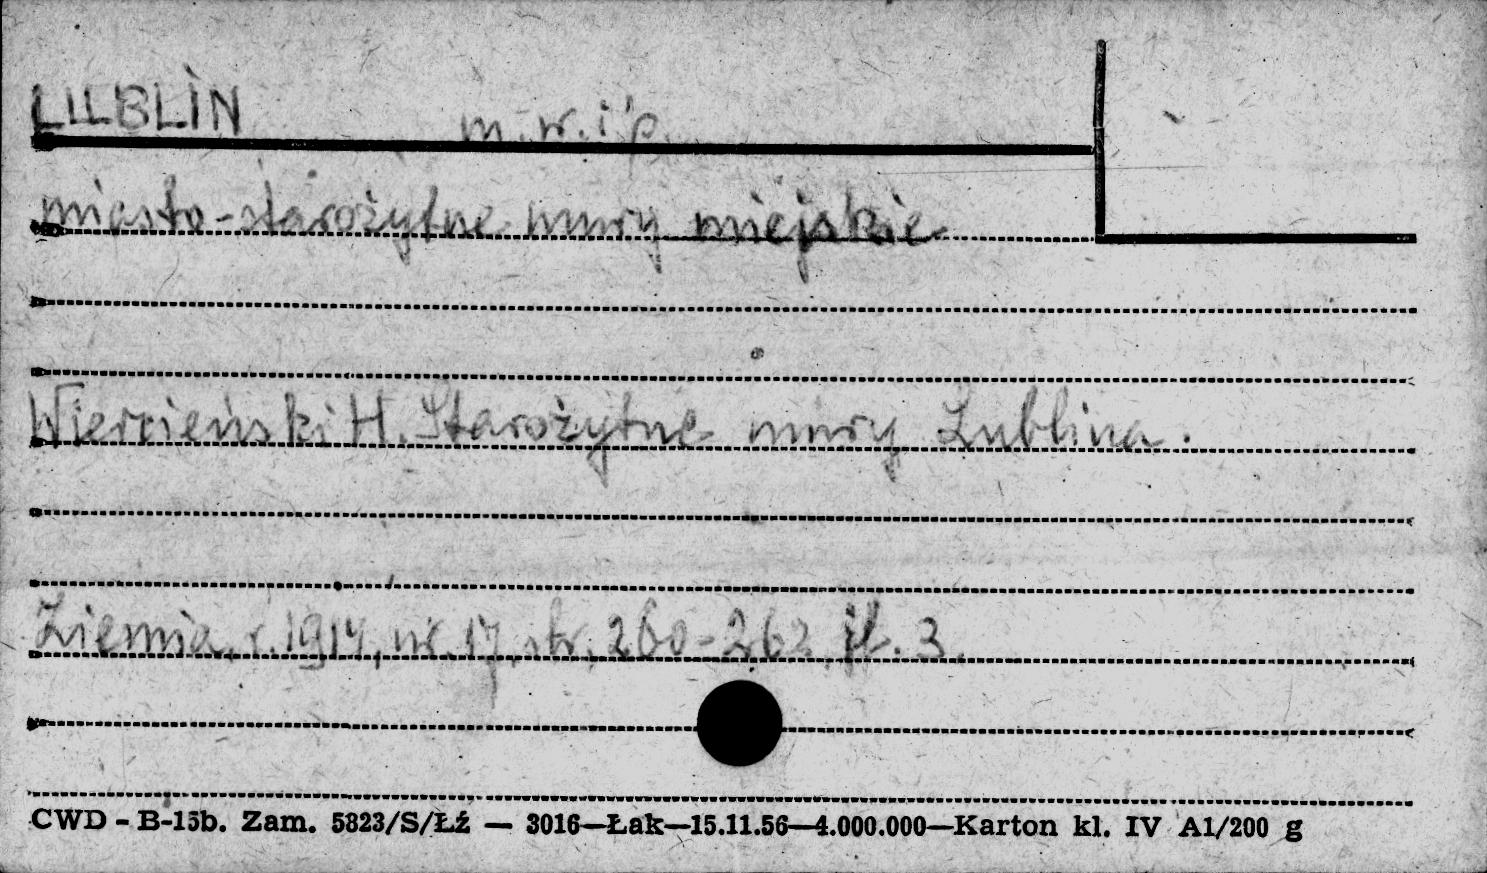 LUBLIN m. w. i p.
miasto - starożytne mury miejskie
Wiercieński H. Starożytne mury Lublina.
Ziemia, r. 1914, nr. 17, str. 260-262, il. 3.
CWD - B-15b. Zam. 5823/S/Łź — 3016—Łak—15.11.56—4.000.000—Karton kl. IV A1/200 g